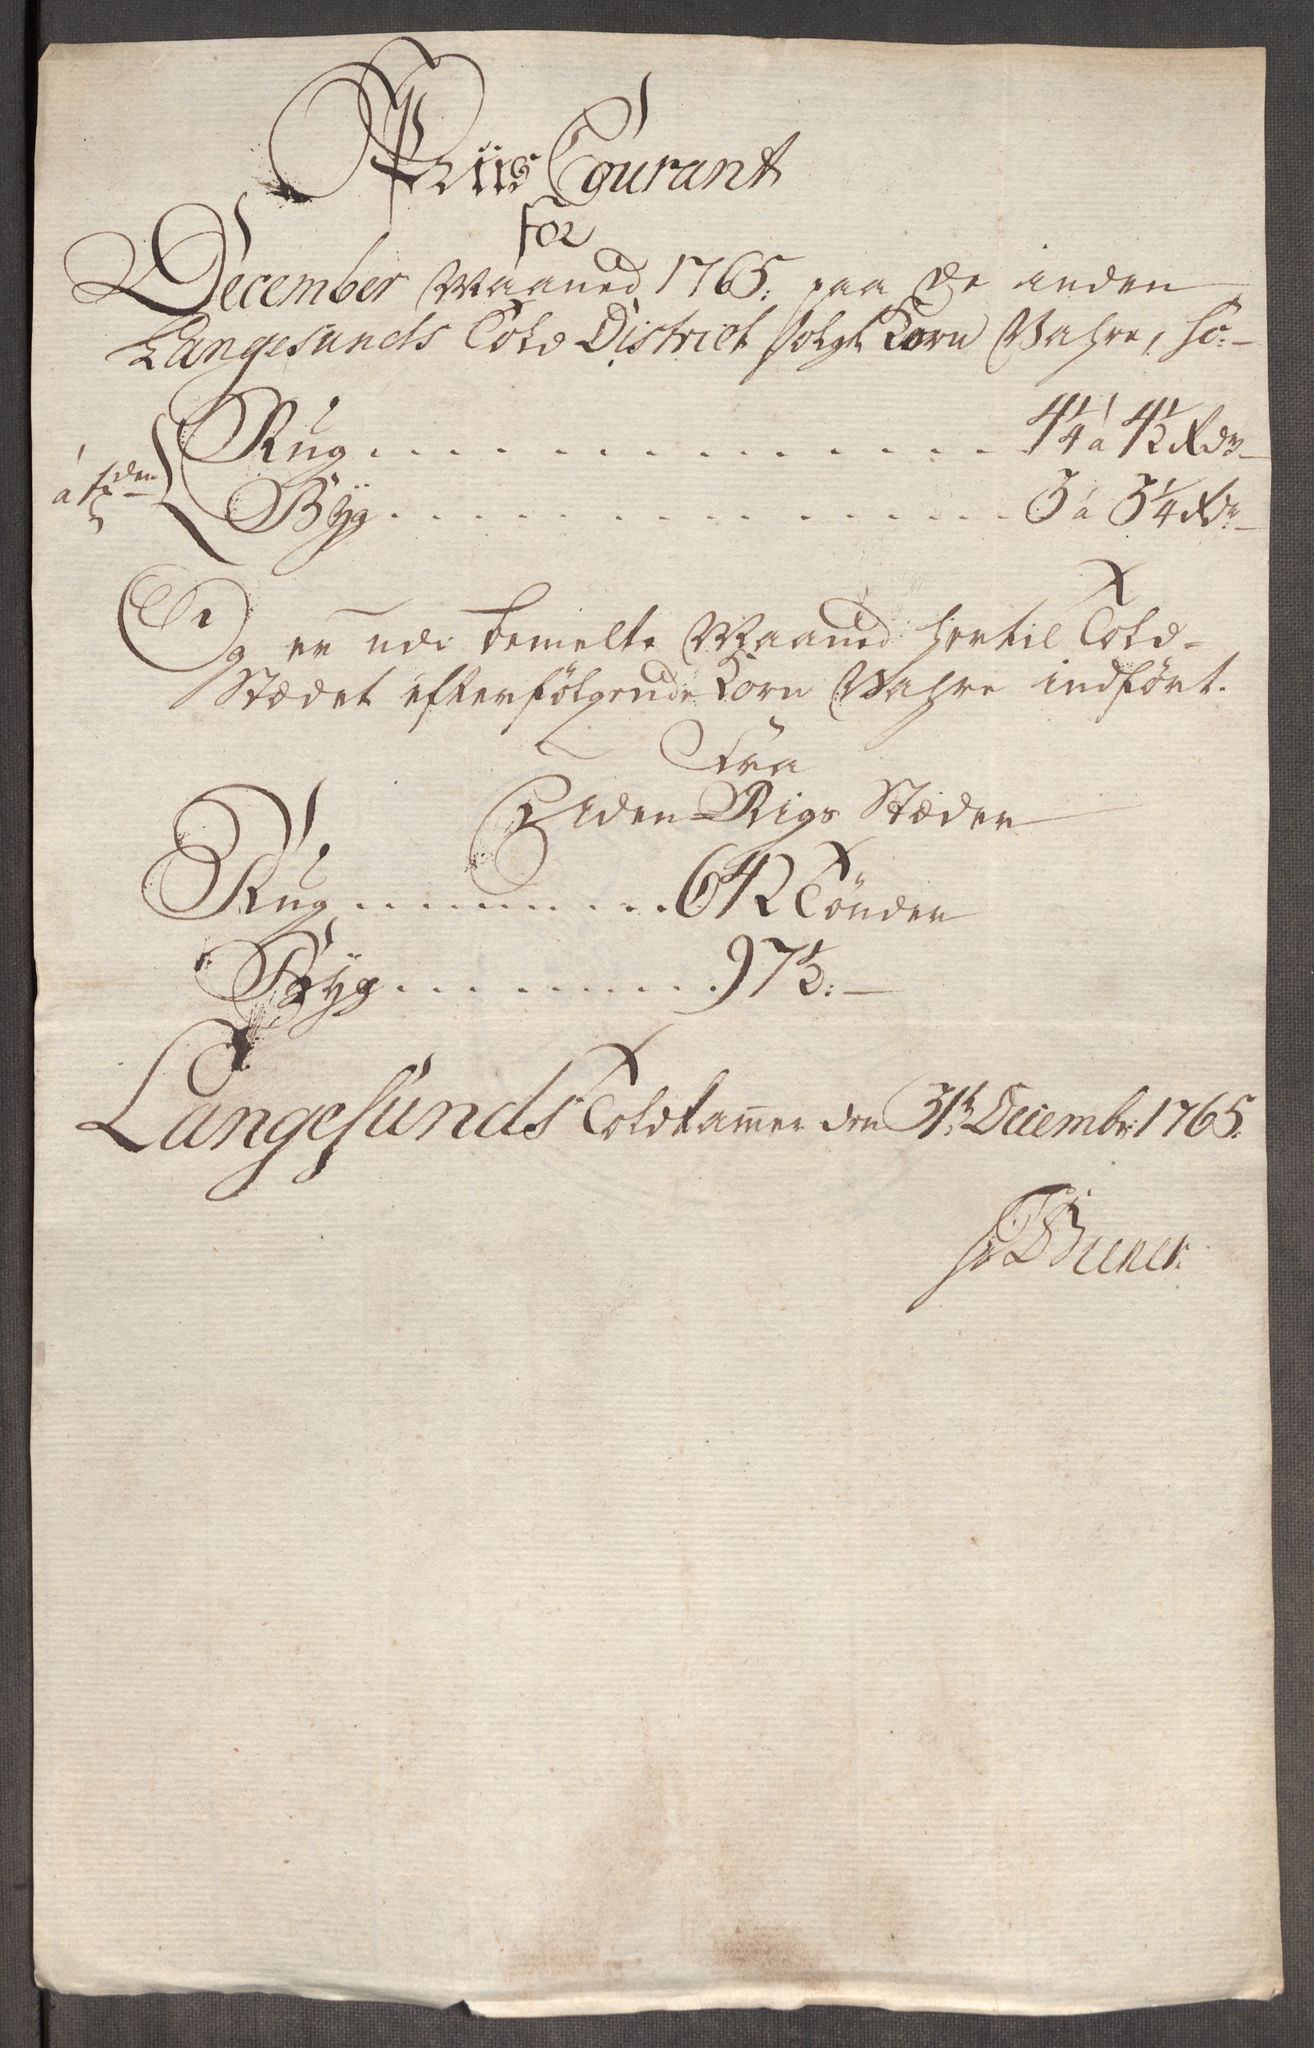 Priis Courant
for
December Maaned 1765. paa de inden
Langesunds Told District solgte Korn Vahre, so:
Rug . . . . . . . . . . . . . . . 4 1/4 á 4 1/2 Rdr
á Tden
Byg . . . . . . . . . . . . . . . 3 á 3 1/4 Rdr
Og er udi bemelte Maaned hertil Told-
Stædet efterfølgende Korn Vahre indført.
Fra
Rigs Stæder
Rug . . . . . . . . . 642 Tönder
Byg . . . . . . . . . 97 1/2: —
Langesunds Toldkammer den 31te Decembr: 1765.